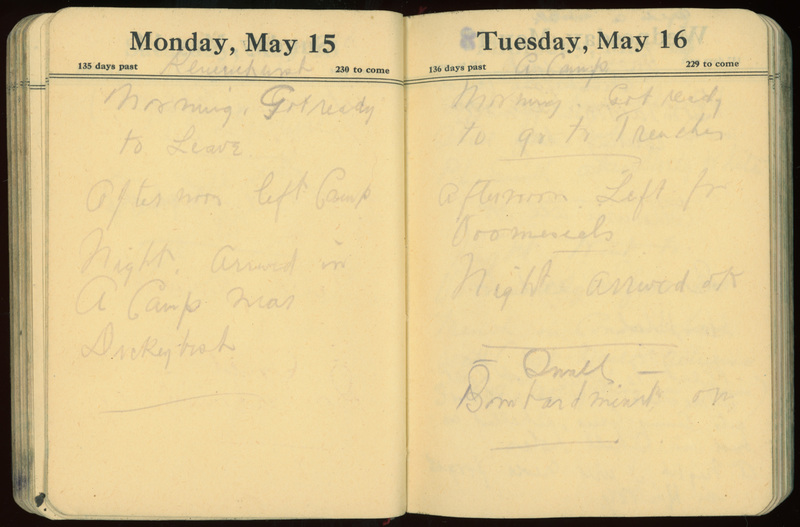 Monday, May 15
135 days past 230 to come
Morning. Got ready
to Leave
Afternoon left Camp
Night. Arrived in
A Camp near
Tuesday, May 16
136 days past 229 to come
A Camp
Morning. Got ready
to go to Trenches
Afternoon Left for
Night arrived ok
Small
Bombardment on